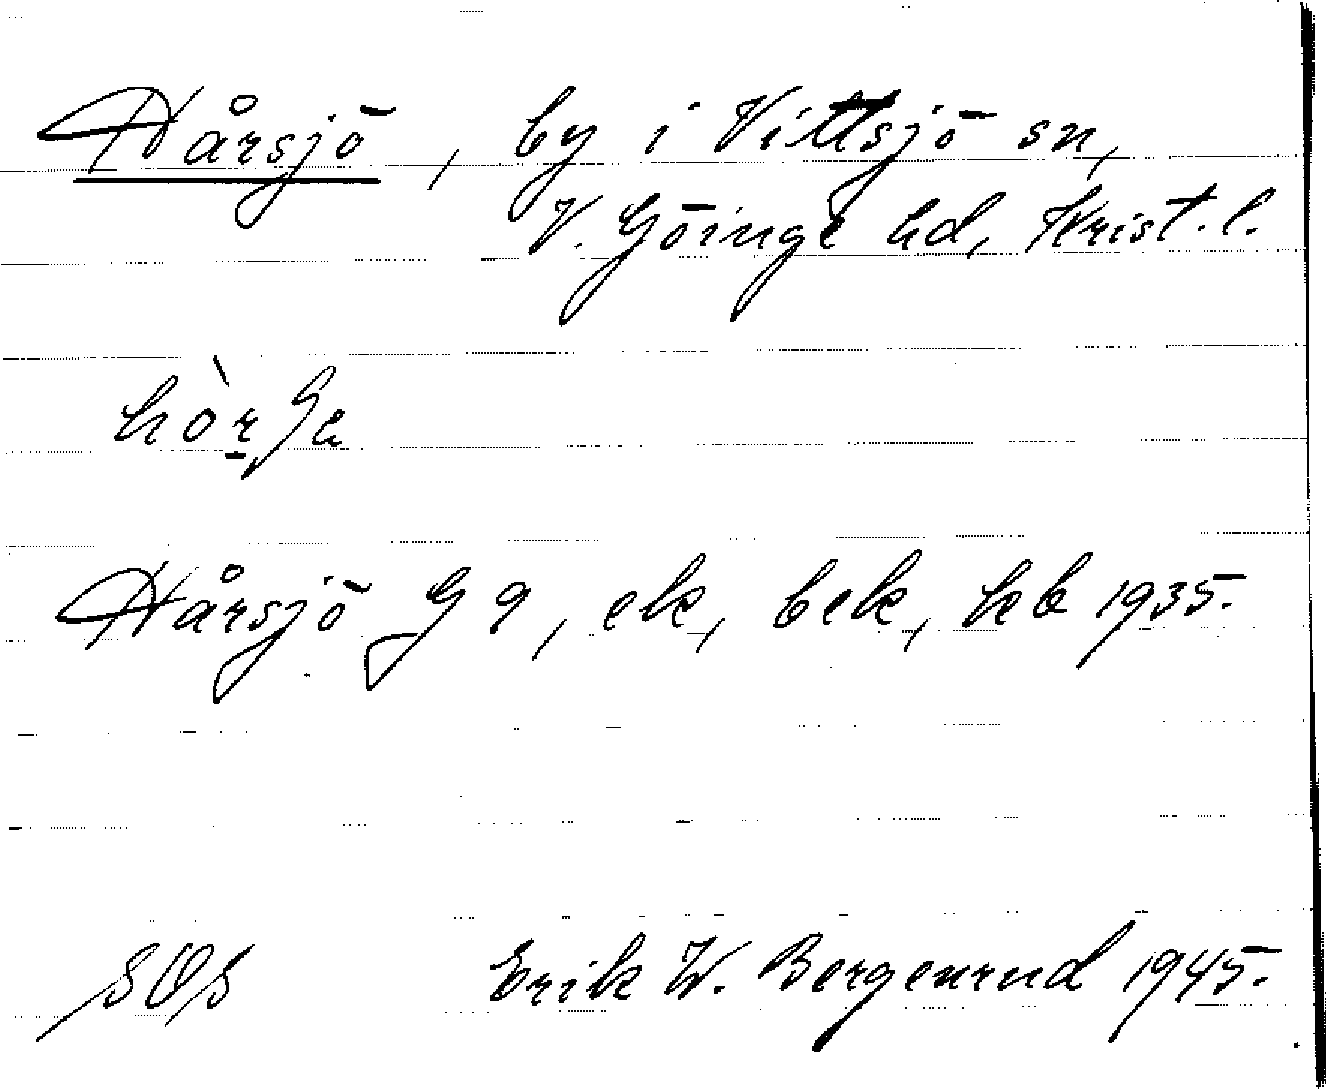 Hårsjö, by i Vittsjö sn,
V. Göinge hd, Krist. l.
Hårsjö G 9, ek, bek, kb 1935.
SOS Erik W. Bergenrud 1945.